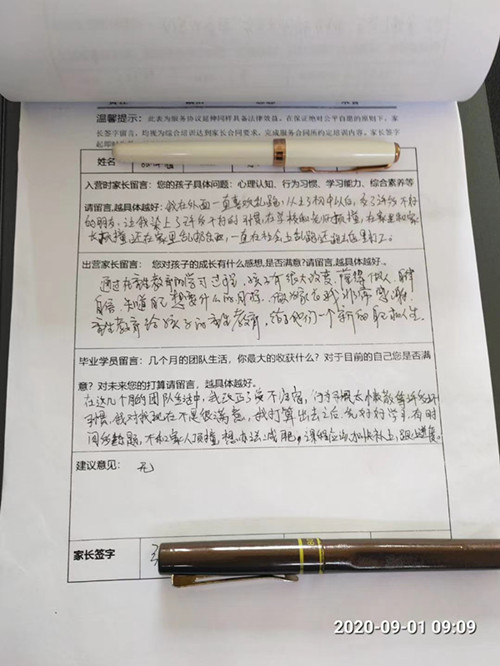 温馨提示：此表为服务协议延伸同样具备法律效益，在保证绝对公平自愿的原则下，家
长签字留言，均视为综合培训达到家长合同要求，完成服务合同所约定培训内容，家长签字
起即时
姓名
入营时家长留言：您的孩子具体问题：心理认知、行为习惯、学习能力、综合素养等
请留言，越具体越好。我在外面一直喜欢乱跑，从上了初中以后，交了许多不好
的朋友，让我染上了许多不好的习惯，在学校和老师顶撞，在家里和家
长顶撞，还在家里乱砸东西，一直在社会上乱跑还跑去
出营家长留言： 您对孩子的成长有什么感想，是否满意？请留言，越具体越好。
通过在 教育的学习过程，孩子有很大改变，懂得做人，
自信，知道自己想要什么的目标，做为家长我非常感谢
教育给孩子的 教育，给了他们一个新的 人生。
毕业学员留言：几个月的团队生活，你最大的收获什么？对于目前的自己您是否满
意？对未来您的打算请留言，越具体越好。
在这几个月的团队生活中，我改正了夜不归宿， 等许多坏
习惯，我对我现在不是很满意，我打算出去之后 好好学习，有时
间 ，不和家人顶撞，想办法减肥，课程应该加快补上，跟上进度。
建议意见： 无
家长签字
2020-09-01 09:09